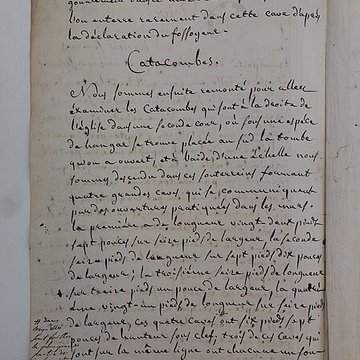 l'on enterre rarement dans cette cave d'après
la déclaration du fossoyeur
Catacombes.
Nous sommes ensuite remonté pour aller
examiner les Catacombes qui sont à la droite de
l'église dans une seconde cour, où sous une espèce
de hangar se trouve placée au sud la tombe
qu'on a ouvert, et à l'aide d'une Echelle nous
sommes descendu dans ces souterreins formant
quatre grandes caves, qui se communiquent
par des ouvertures pratiquées dans les murs.
la première a de longueur vingt deux pieds
sept pouces sur seize pieds de largeur, la seconde
seize pieds de longueur sur sept pieds dix pouces
de largeur; la troisième seize pieds de longueur
sur treize pieds un pouce de largeur, la quatri
ème vingt-un pieds de longueur sur seize pieds
de largeur, ces quatre caves ont six pieds sept
pouces de hauteur sous clef, trois de ces caves qui
sont sur la même ligne ont aucune